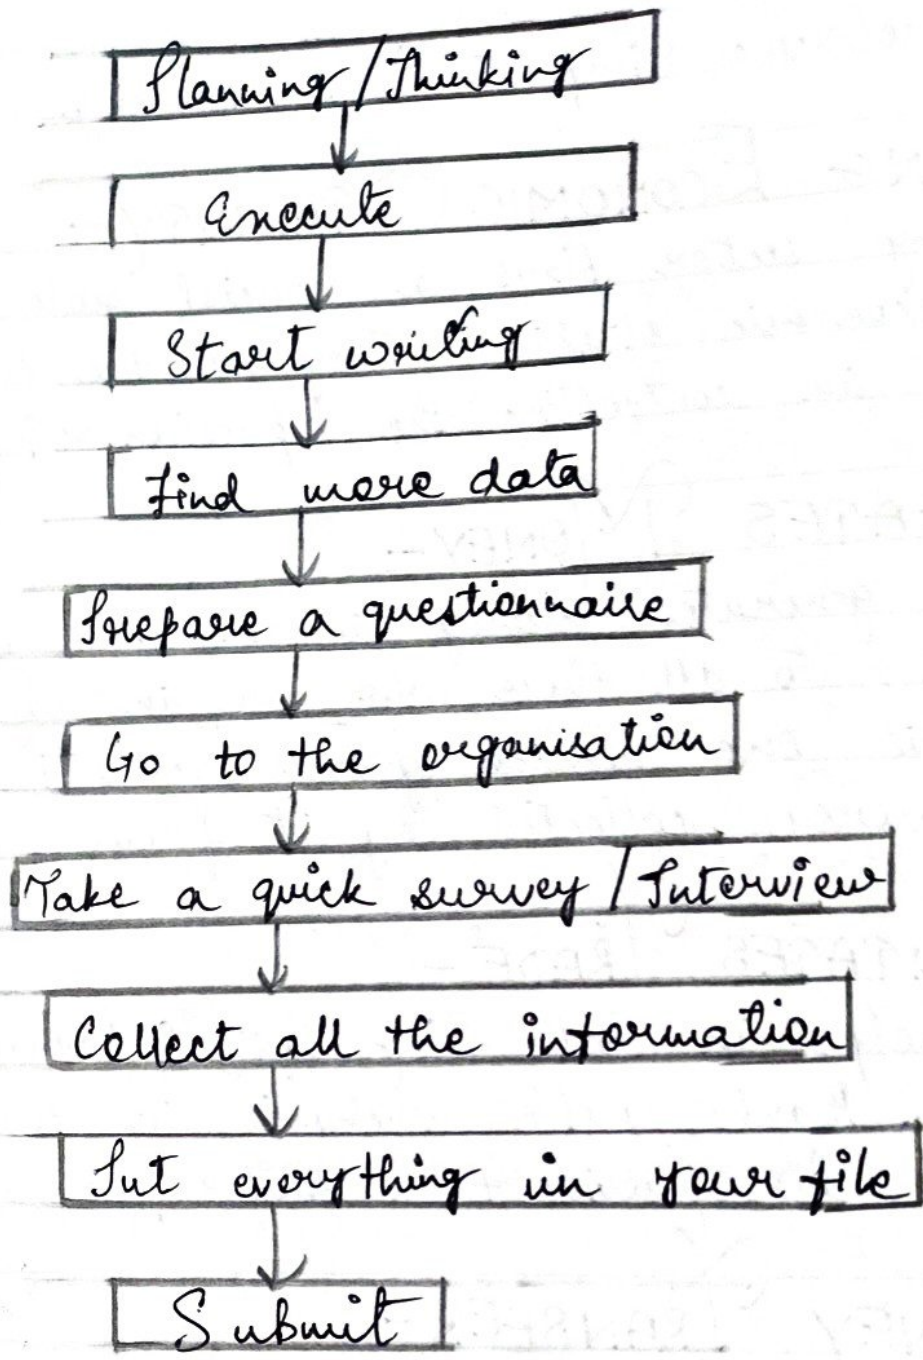 Planning/Thinking
Execute
Start writing
Find more data
Prepare a questionnaire
Go to the organisation
Take a quick survey/Interview
Collect all the information
Put everything in your file
Submit